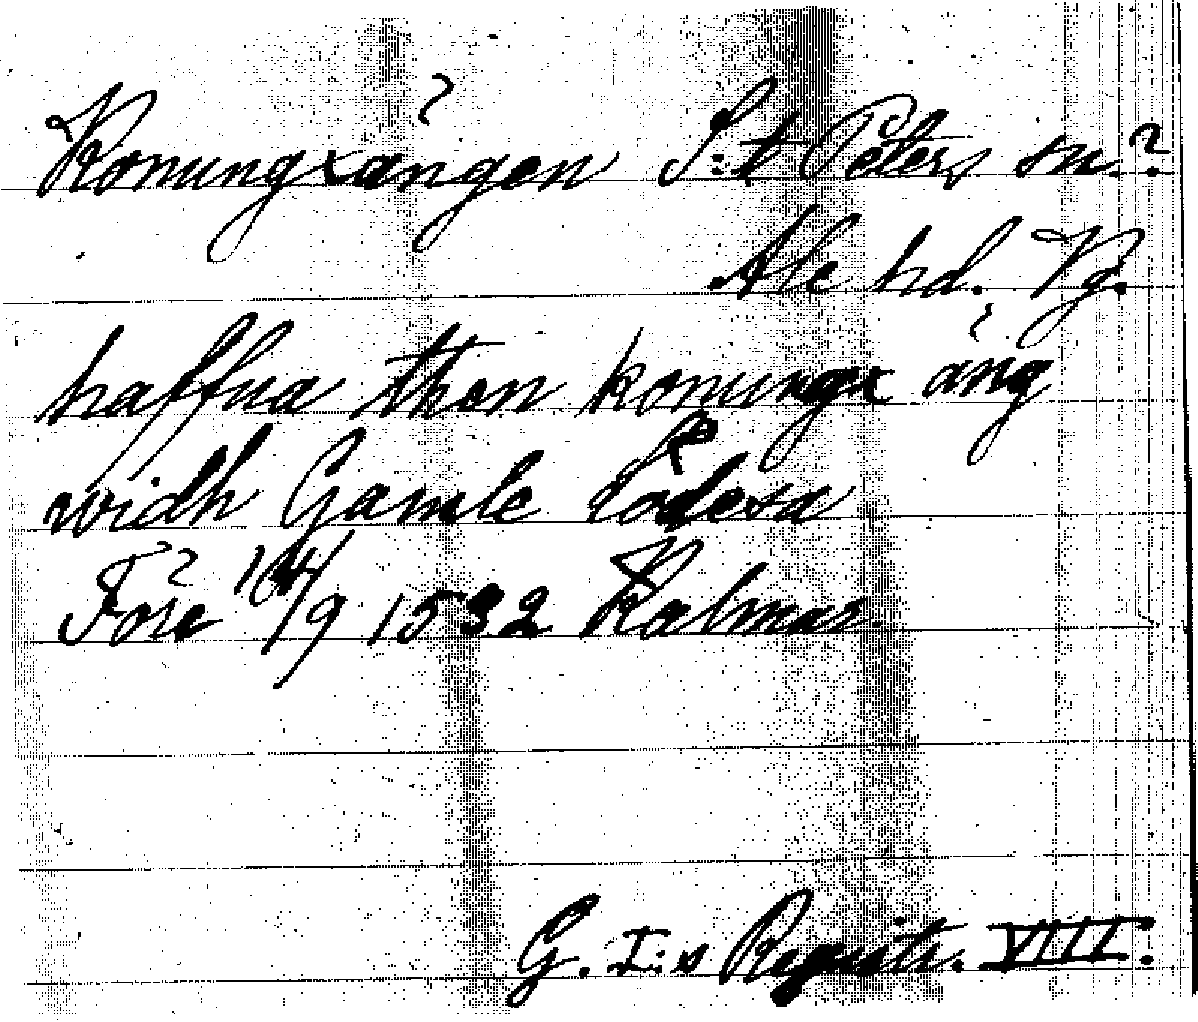 Konungxängen S:t Peters sn.?
Ale hd. Vg.
haffua then konungx äng
widh Gamle Lödesa
Före 14/9 1532 Kalmar.
G. I:s Registr. VIII.